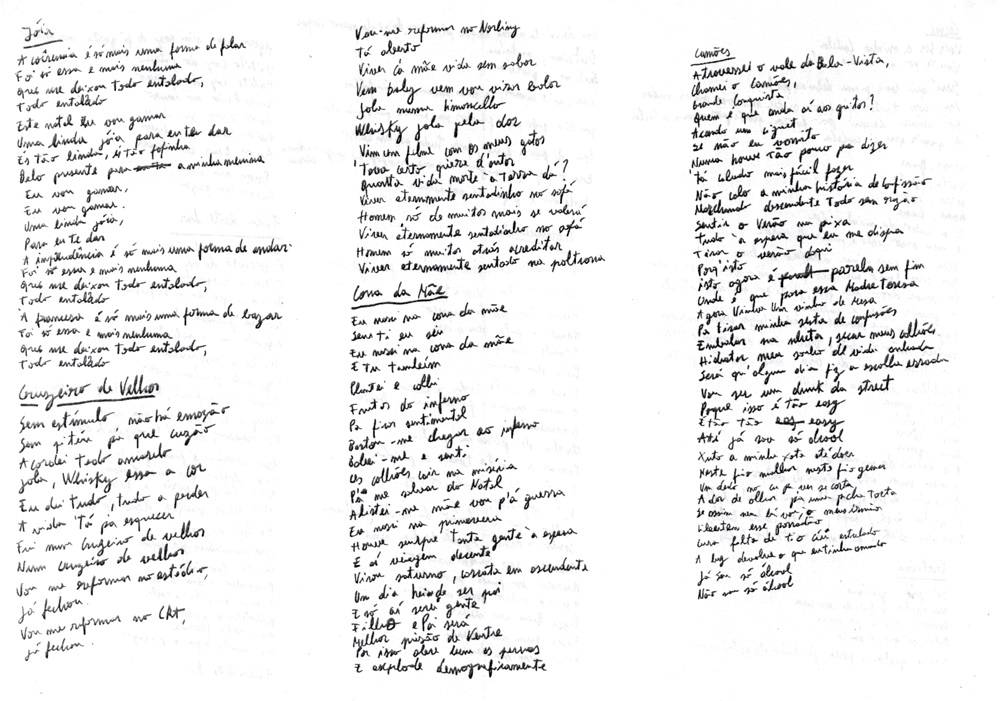 Jóia
A coerência é só mais uma forma de falar
Foi só essa e mais nenhuma
Que me deixou todo entalado,
Todo entalado
Este natal lhe vou gamar
Uma linda jóia para eu te dar
És tão linda, és tão fofinha
Belo presente para a minha menina
Eu vou gamar,
Eu vou gamar.
Uma linda jóia,
Para eu te dar
A imprudência é só mais uma forma de andar
Foi só essa e mais nenhuma
Que me deixou todo entalado,
Todo entalado
A francesa é só mais uma forma de bazar
Foi só essa e mais nenhuma
Que me deixou todo entalado,
Todo entalado
Cruzeiro de Velhos
Sem estímulo não há emoção
Sem guita pá que
Acordei todo amarelo
Jola, Whisky essa a cor
Eu dei tudo, tudo a perder
A vida 'tá pá esquecer
Fui num cruzeiro de velhos
Num cruzeiro de velhos
Vou me reformar no estádio,
Já fechou.
Vou me reformar no CAt,
Já fechou.
Vou-me reformar no
Tá aberto
Viver cá mãe vida sem sabor
Vem baby vem vou virar
Jola numa limoncello
Whisky jola pela dor
Vim um filme com os meus gatos
'Tava certo d'autor
Quanta vida morte a Tarva dá?
Viver eternamente sentadinho no sofá
Homem só de muitos mais se valerá
Viver eternamente sentadinho no sofá
Homem só muitos atrás acreditar
Viver eternamente sentado na poltrona
Cona da Mãe
Eu nasci na cona da mãe
Senti eu sei
Eu nasci na cona da mãe
E tu também
Plantei e colhi
Frutos do inferno
Pa ficar sentimental
Bastou-me chegar ao inferno
Baldei-me e senti
Os colhões cair na miséria
Pá me salvar do Natal
Alistei-me mãe vou p'á guerra
Eu nasci na primavera
Houve sempre tanta gente à espera
E aí viagem decente
Virou saturno, em ascendente
Um dia hei-de ser pai
E só aí serei gente
Filho e Pai será
Melhor prisão de Ventre
Por isso abre bem as pernas
E explode demograficamente
Camões
Atravessei o vale da Bela-Vista,
Chamei o Camões,
Grande Conquista,
Quem é que anda aí aos gritos?
Acendo um
Se não eu vomito
Nunca houve tão pouco pa dizer
'Tá calado mais fácil fazer
Não calo a minha história de confissão
Marchando descendente todo sem razão
Sentir o Verão na
Tudo à espera que eu me dispa
Tirar o verão daqui
Porq'isto
isto agora é parela sem fim
Onde é que para essa Madre Teresa
Agora Vinha Um vinho de Mesa
Pá fixar minha sesta de confusões
Embalar na, secar meus colhões
Hidratar meu sonho de vida
Será qu'algum dia fiz a escolha errada
Vou ser um drunk da street
Porque isso é tão easy
É tão tão easy
Até já sou só álcool
Xuto a minha xota até doer
Neste fio malhar neste fio gemer
Um dedo no cu pa ver se corta
A dor de olhar, pa uma picha torta
Se assim meu bi vai, o meu
Libertem esse
falta de tio Céu estrelado
A luz devolve o que eu tinha amado
Já sou só álcool
Não sou só álcool